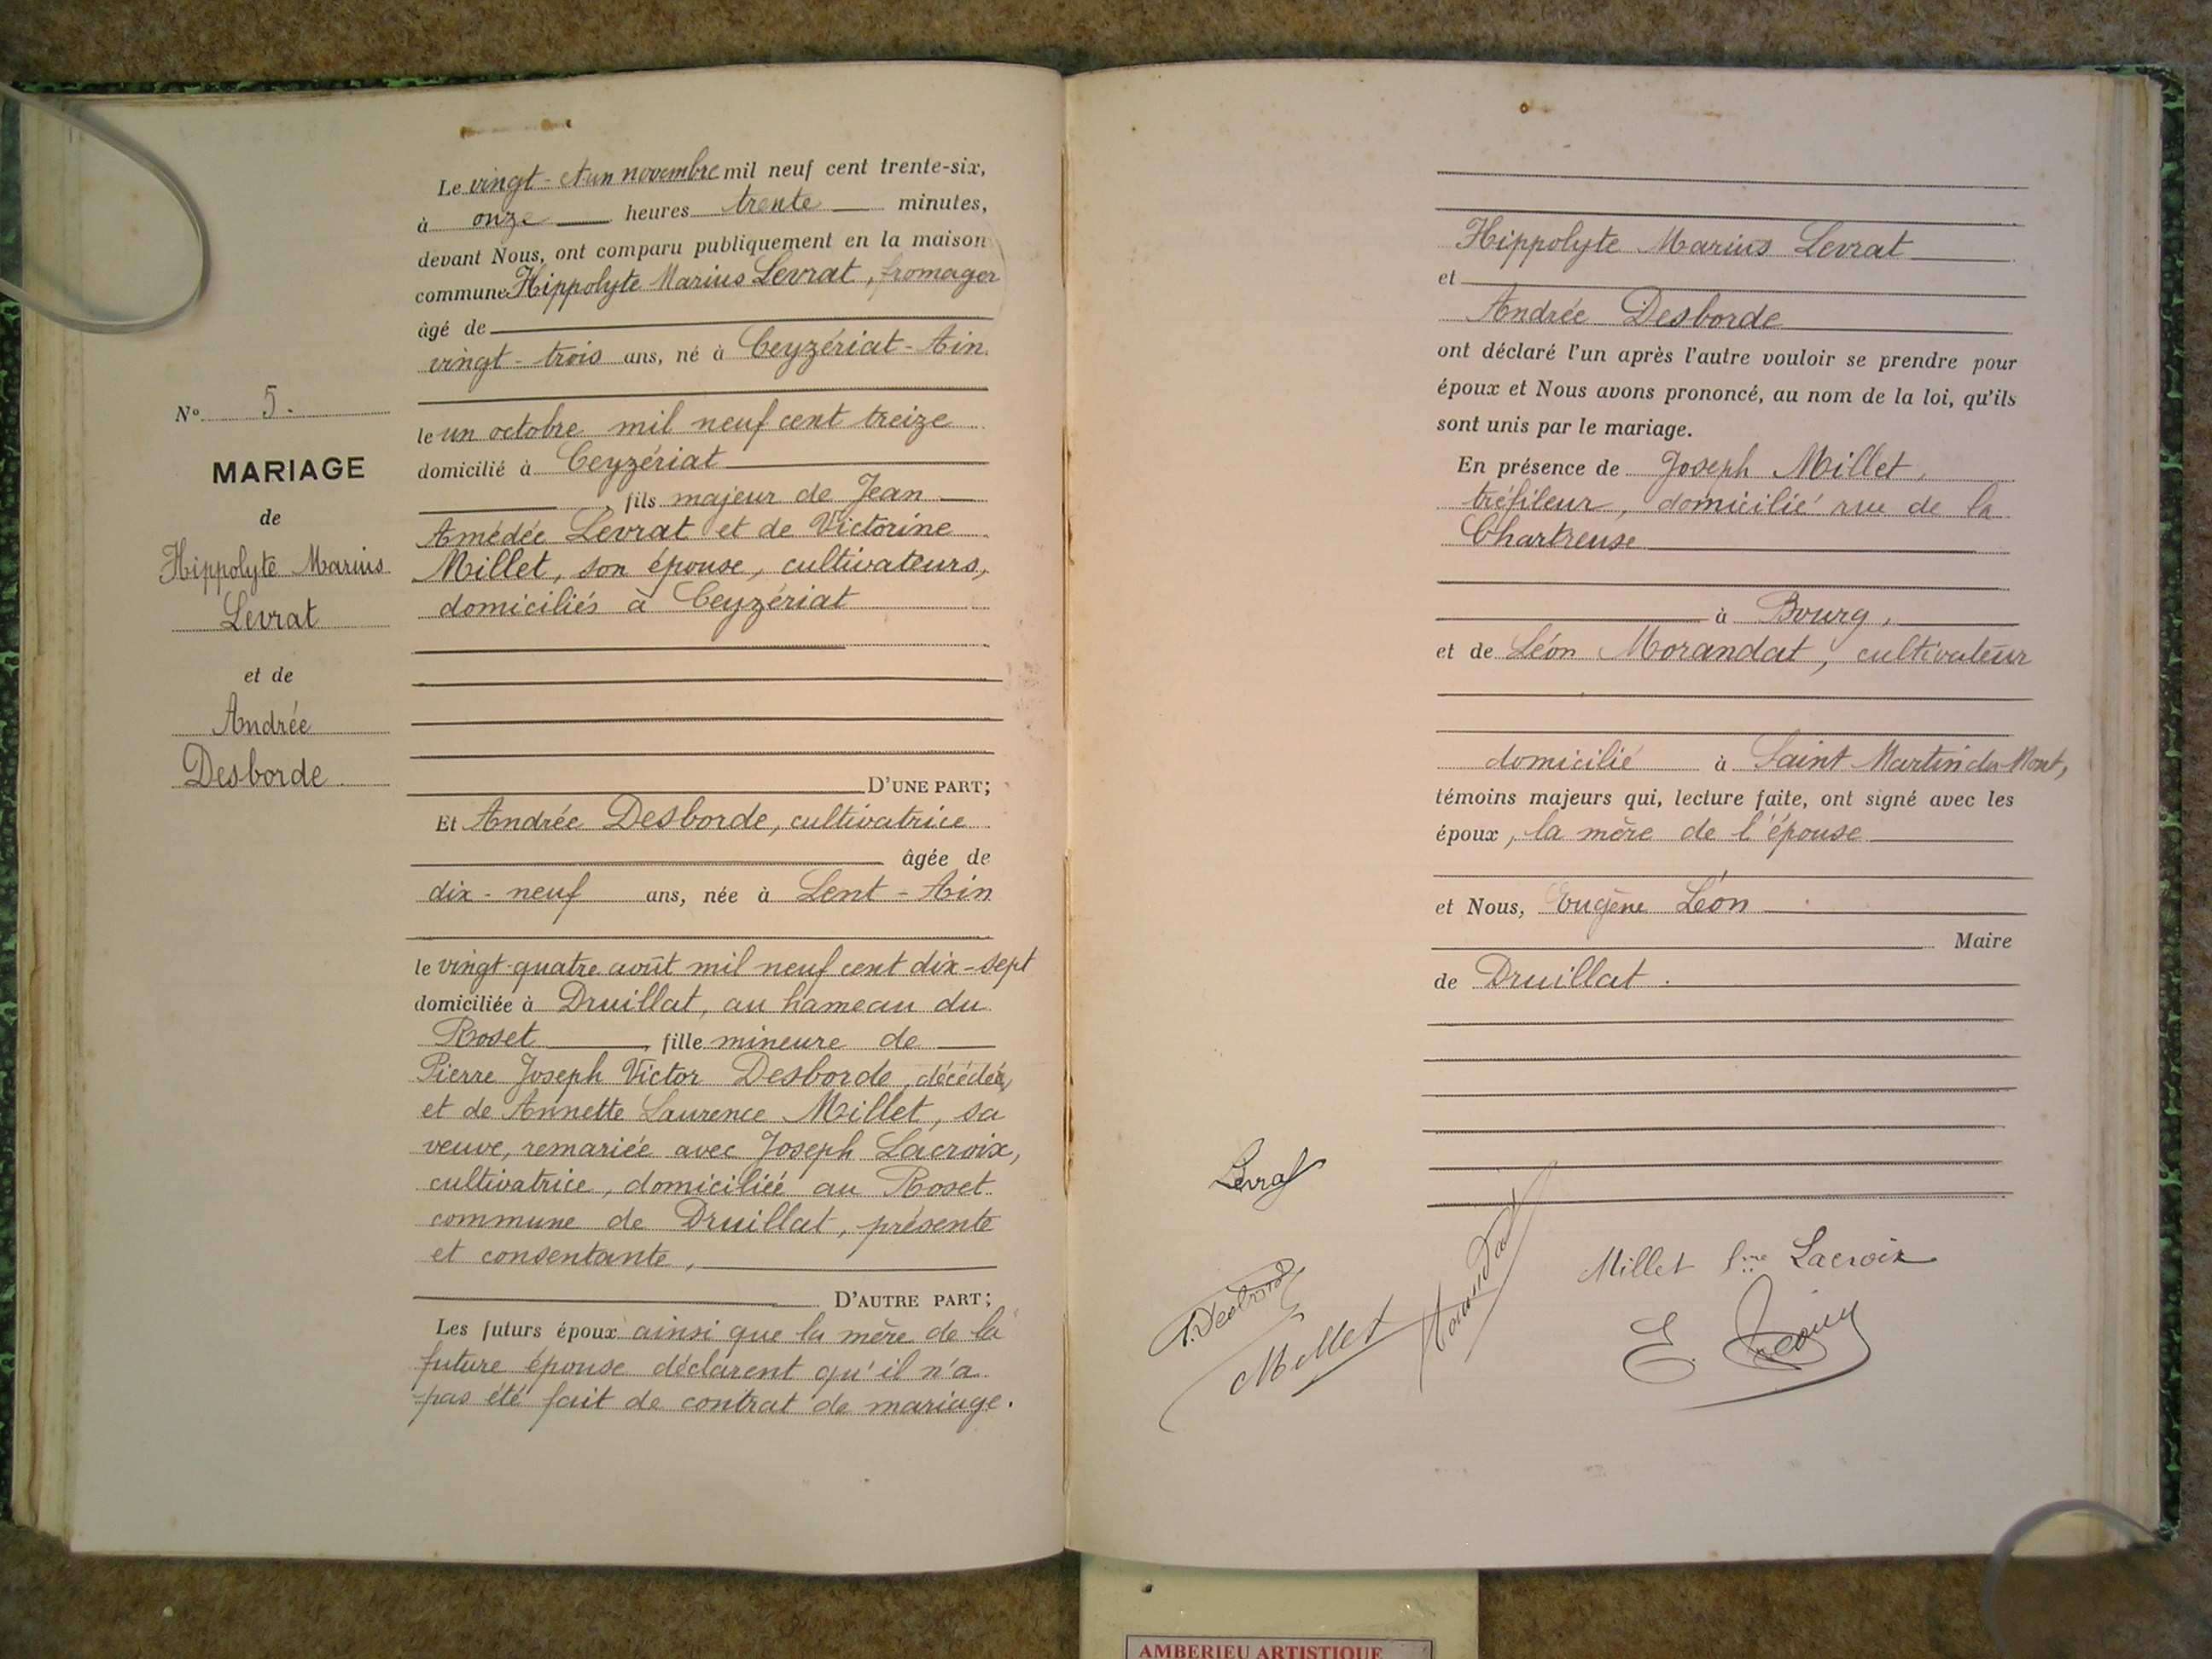 Le vingt-et-un novembre mil neuf cent trente-six,
à onze heures trente minutes,
devant Nous, ont comparu publiquement en la maison
commune Hippolyte Marius Levrat, fromager
âgé de
vingt-trois ans, né à Ceyzériat-Ain
le un octobre mil neuf cent treize
domicilié à Ceyzériat
, fils majeur de Jean
Amédée Levrat et de Victorine
Millet, son épouse, cultivateurs,
domiciliés à Ceyzériat
D'UNE PART;
Et Andrée Desborde, cultivatrice
âgée de
dix-neuf ans, née à Lent-Ain
le vingt-quatre août mil neuf cent dix-sept
domiciliée à Druillat, au hameau du
Roset, fille mineure de
Pierre Joseph Victor Desborde, décédé,
et de Annette Laurence Millet, sa
veuve, remariée avec Joseph Lacroix,
cultivatrice, domiciliée au Roset
commune de Druillat, présente
et consentante,
D'AUTRE PART;
Les futurs époux ainsi que la mère de la
future épouse déclarent qu'il n'a
pas été fait de contrat de mariage.
N° 5.
MARIAGE
de
Hippolyte Marius
Levrat
et de
Andrée
Desborde.
Hippolyte Marius Levrat
et
Andrée Desborde
ont déclaré l'un après l'autre vouloir se prendre pour
époux et Nous avons prononcé, au nom de la loi, qu'ils
sont unis par le mariage.
En présence de Joseph Millet,
tréfileur, domicilié rue de la
Chartreuse
à Bourg,
et de Léon Morandat, cultivateur
domicilié à Saint Martin du Mont,
témoins majeurs qui, lecture faite, ont signé avec les
époux, la mère de l'épouse
et Nous, Eugène Léon
Maire
de Druillat.
Levrat
A. Desborde
Millet
Morandat
Millet Lacroix
E. Léon
AMBERIEU ARTISTIQUE